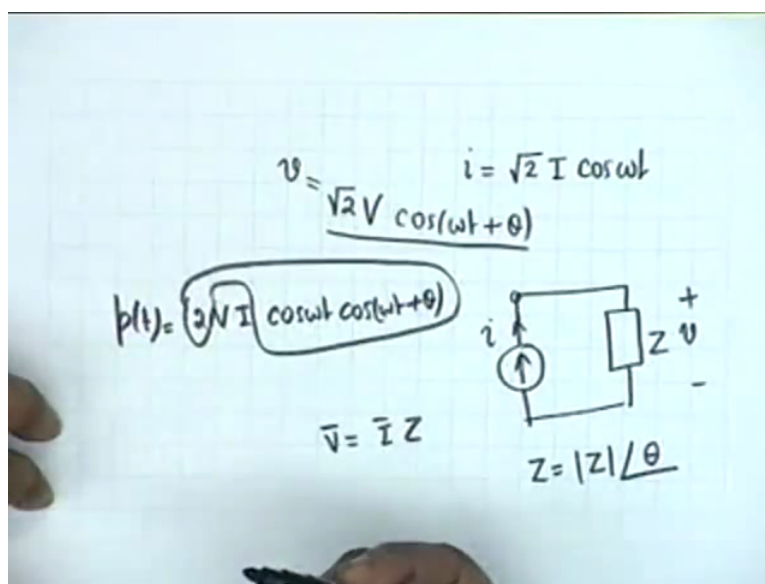 i = √2 I cos ωt
v = √2 V cos(ωt + θ)
p(t) = (2 V I) cos ωt cos(ωt + θ)
i
Z
+
v
-
V̄ = Ī Z
Z = |Z| ∠θ